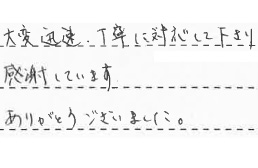 大変迅速、丁寧に対応して下さり
感謝しています
ありがとうございました。